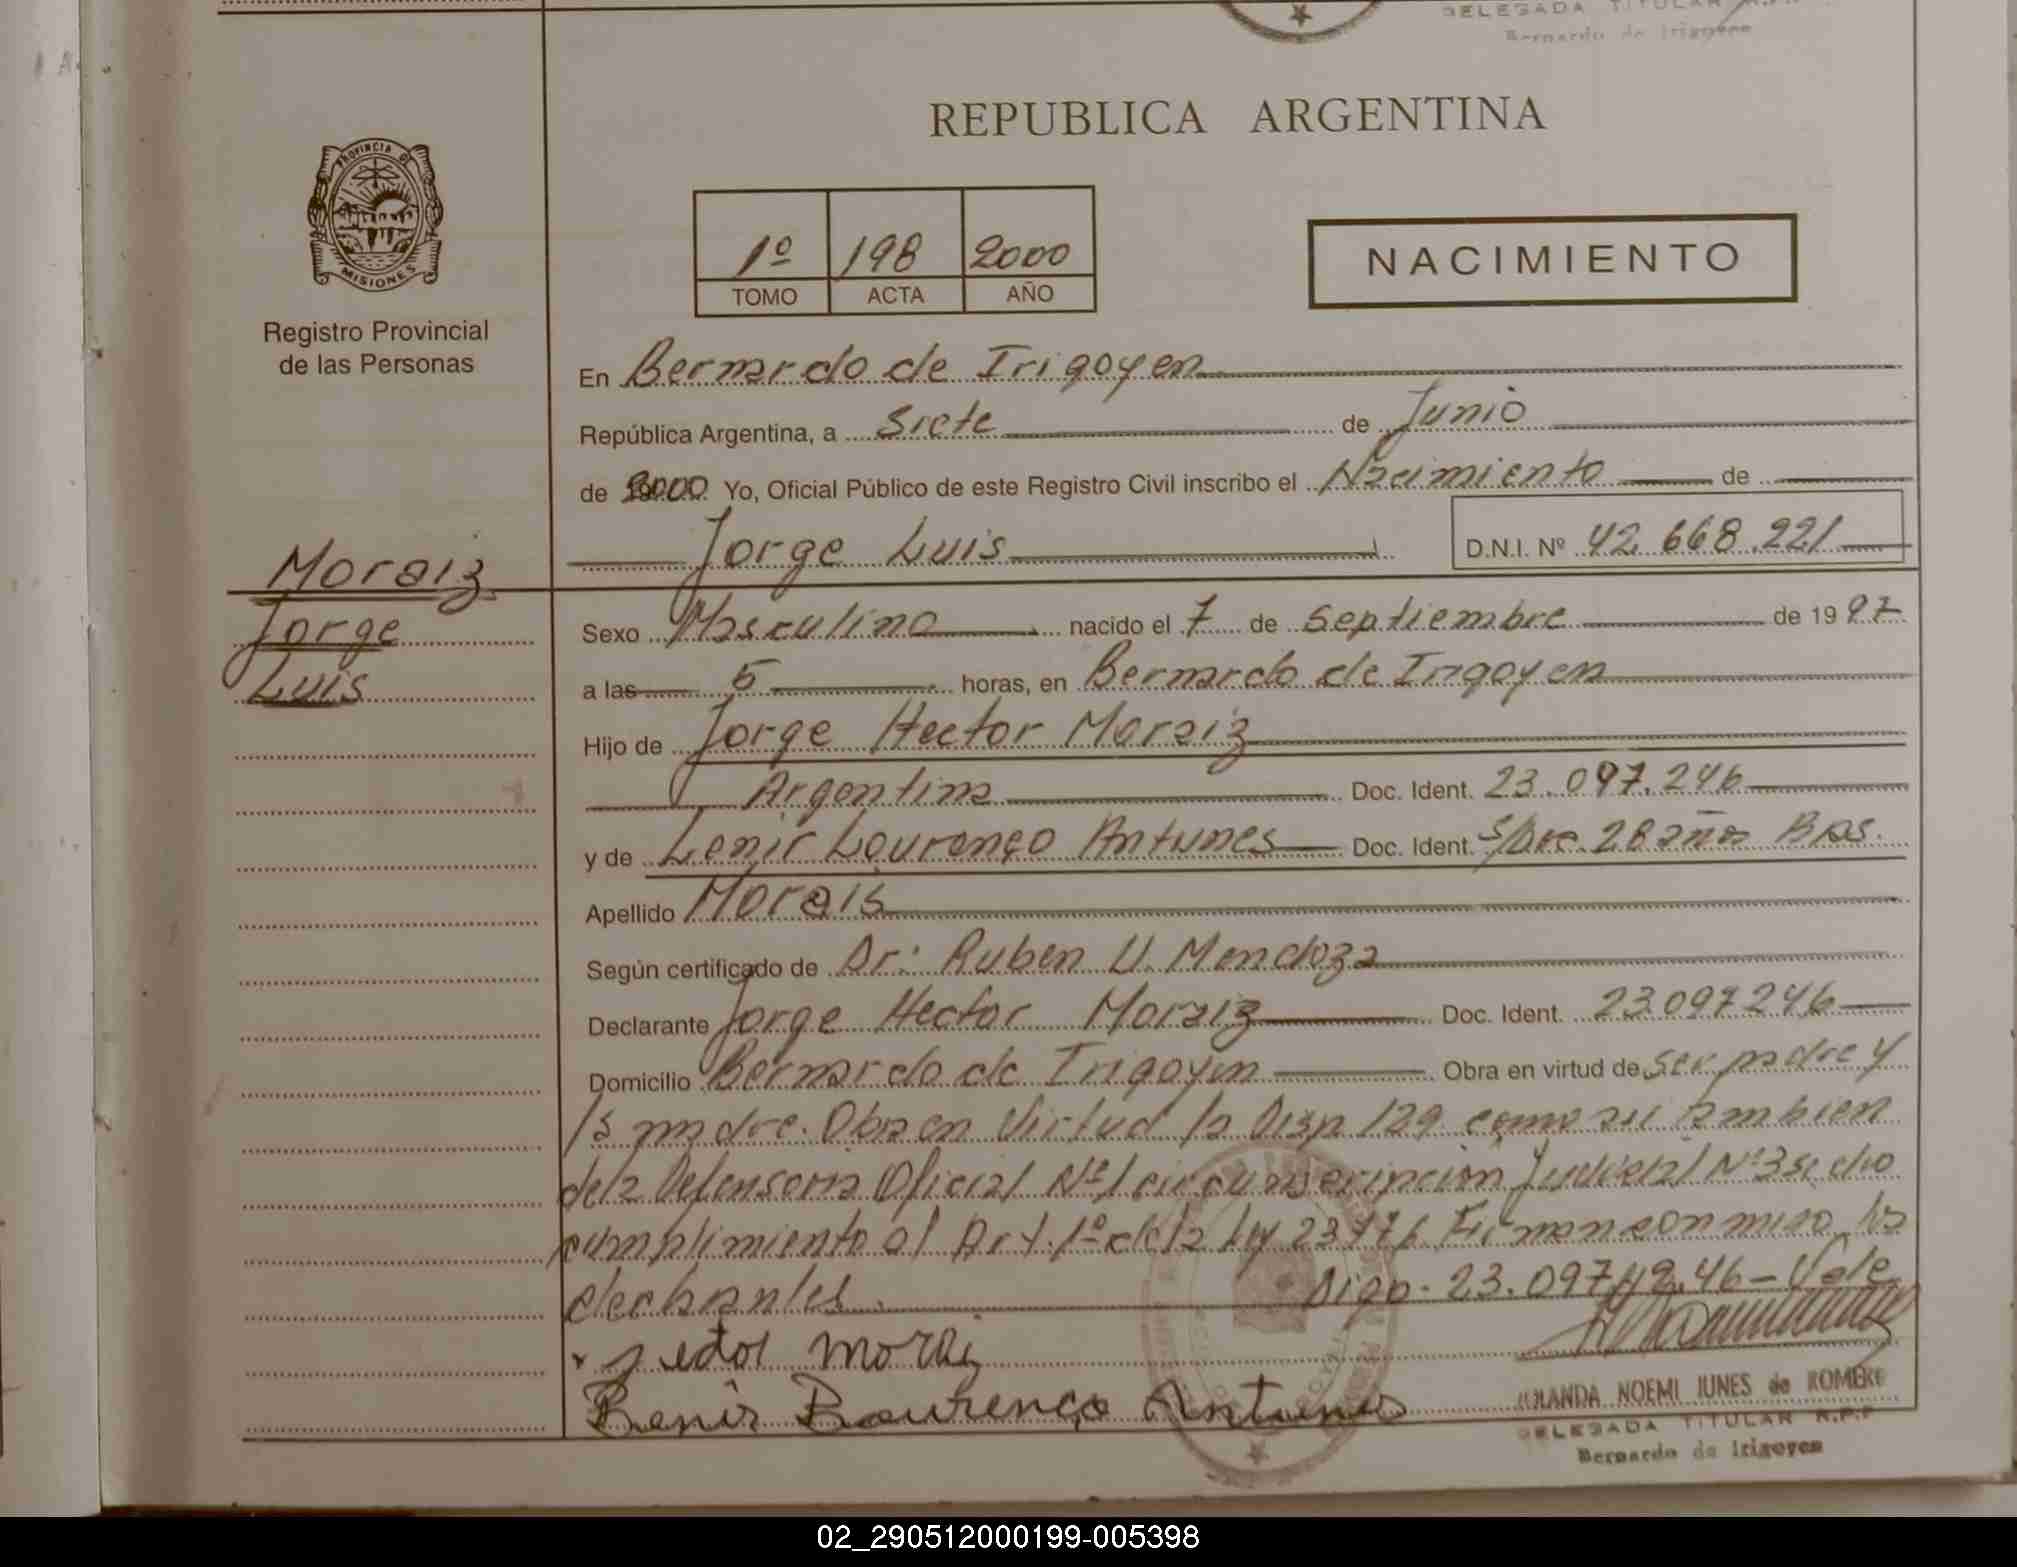 DELEGADA TITULAR R.P.P.
Bernardo de Irigoyen
REPUBLICA ARGENTINA
PROVINCIA DE
MISIONES
1º 198 2000
TOMO ACTA AÑO
NACIMIENTO
Registro Provincial
de las Personas
En Bernardo de Irigoyen
República Argentina, a Siete de Junio
de 2000 Yo, Oficial Público de este Registro Civil inscribo el Nacimiento de
Jorge Luis D.N.I. Nº 42.668.221
Moraiz
Jorge
Luis
Sexo Masculino nacido el 7 de Septiembre de 1997
a las 5 horas, en Bernardo de Irigoyen
Hijo de Jorge Hector Moraiz
Argentina Doc. Ident. 23.097.246
y de Lenir Lourenço Antunes Doc. Ident. S/Doc. 28 años Bras.
Apellido Morais
Según certificado de Dr: Ruben U. Mendoza
Declarante Jorge Hector Moraiz Doc. Ident. 23.097246
Domicilio Bernardo de Irigoyen Obra en virtud de ser padre y
la madre. Obra en Virtud la Disp 129 como asi tambien
de la Defensoria Oficial Nº 1 circunscripcion Judicial Nº 3 se dio
cumplimiento al Art. 1º de la Ley Firman conmigo los
declarantes. Digo - 23.097 - Vale
Hector Morais
Lenir Lourenço Antunes
YOLANDA NOEMI IUNES de ROMERO
DELEGADA TITULAR R.P.P
Bernardo de Irigoyen
02_290512000199-005398